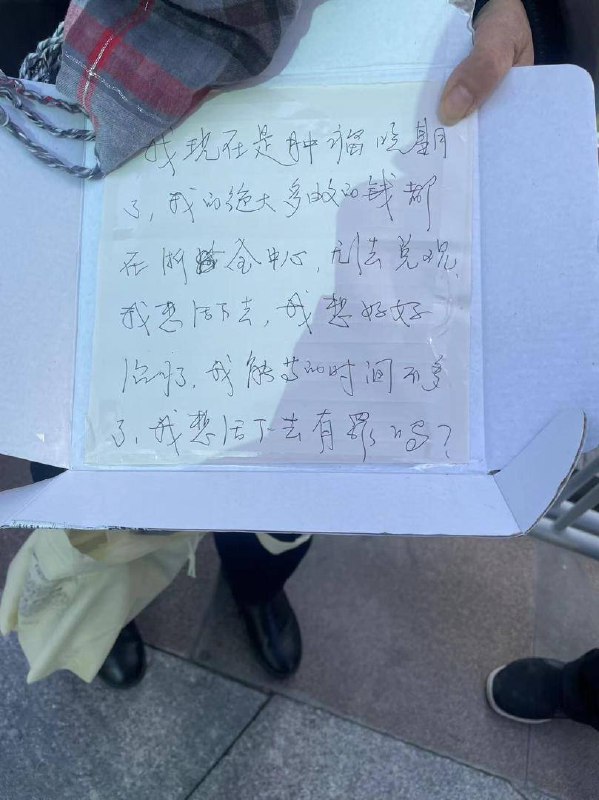 我现在是肿瘤晚期
了，我的绝大多数的钱都
在浙金中心，无法兑现，
我想活下去，我想好好
治疗，我能等的时间不多
了，我想活下去有罪吗？